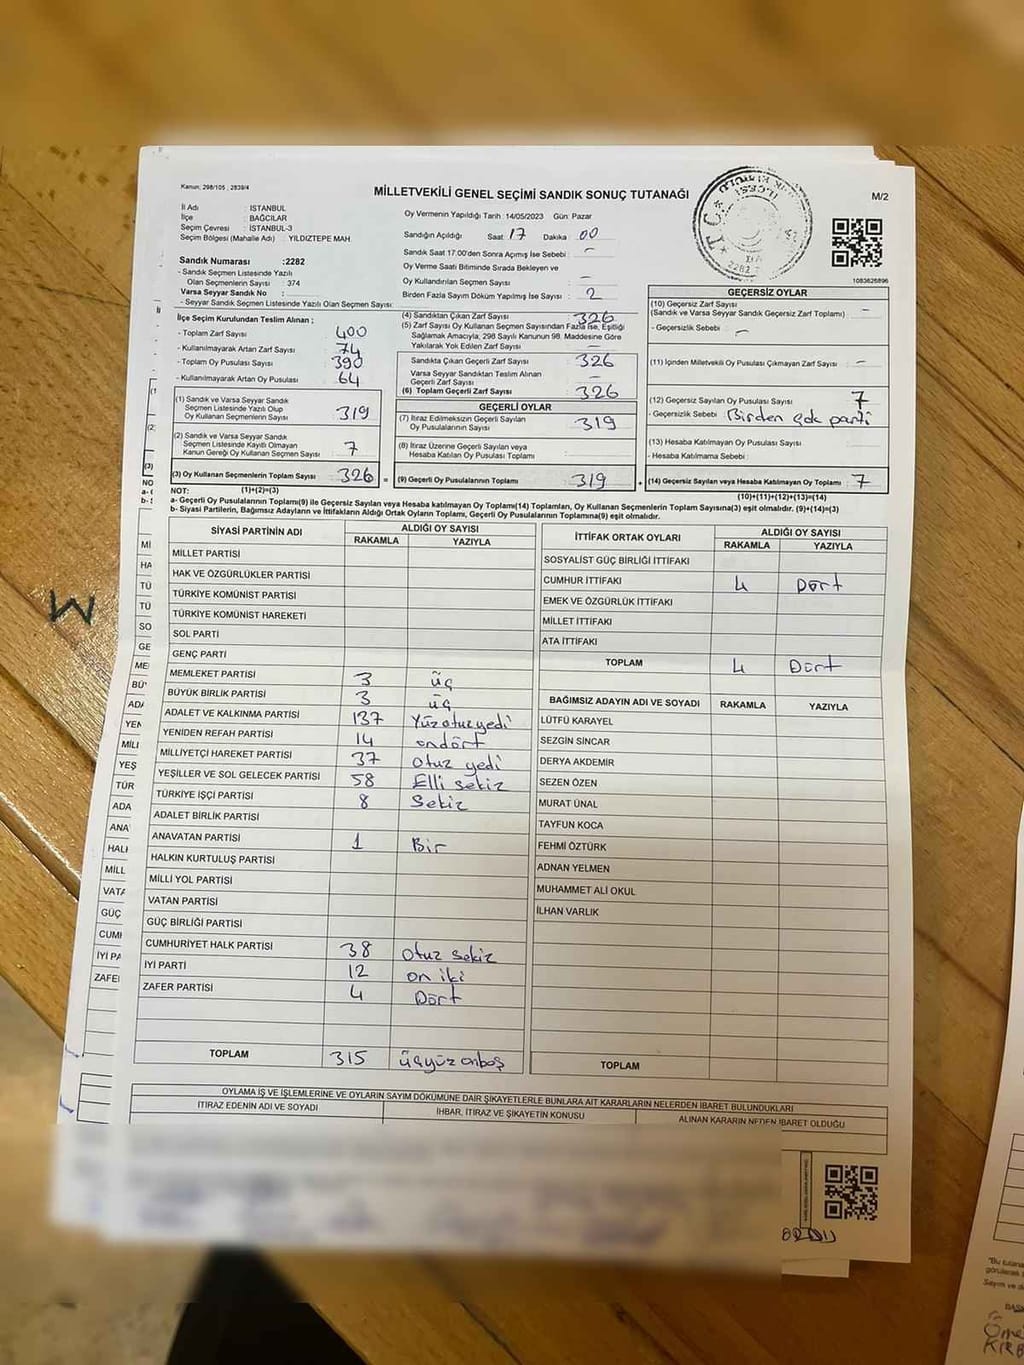 Kanun: 298/105 , 2839/4
MİLLETVEKİLİ GENEL SEÇİMİ SANDIK SONUÇ TUTANAĞI
M/2
İl Adı : İSTANBUL
İlçe : BAĞCILAR
Seçim Çevresi : İSTANBUL-3
Seçim Bölgesi (Mahalle Adı) : YILDIZTEPE MAH.
Sandık Numarası :2282
- Sandık Seçmen Listesinde Yazılı
Olan Seçmenlerin Sayısı : 374
Varsa Seyyar Sandık No :
- Seyyar Sandık Seçmen Listesinde Yazılı Olan Seçmen Sayısı:
Oy Vermenin Yapıldığı Tarih : 14/05/2023 Gün: Pazar
Sandığın Açıldığı Saat 17 Dakika : 00
Sandık Saat 17.00'den Sonra Açılmış İse Sebebi : -
Oy Verme Saati Bitiminde Sırada Bekleyen ve
Oy Kullandırılan Seçmen Sayısı : -
Birden Fazla Sayım Döküm Yapılmış İse Sayısı : 2
1083626896
İlçe Seçim Kurulundan Teslim Alınan ;
- Toplam Zarf Sayısı : 400
- Kullanılmayarak Artan Zarf Sayısı : 74
- Toplam Oy Pusulası Sayısı : 390
- Kullanılmayarak Artan Oy Pusulası : 64
(1) Sandık ve Varsa Seyyar Sandık
Seçmen Listesinde Yazılı Olup
Oy Kullanan Seçmenlerin Sayısı : 319
(2) Sandık ve Varsa Seyyar Sandık
Seçmen Listesinde Kayıtlı Olmayan
Kanun Gereği Oy Kullanan Seçmen Sayısı : 7
(3) Oy Kullanan Seçmenlerin Toplam Sayısı : 326
(4) Sandıktan Çıkan Zarf Sayısı : 326
(5) Zarf Sayısı Oy Kullanan Seçmen Sayısından Fazla İse, Eşitliği
Sağlamak Amacıyla; 298 Sayılı Kanunun 98. Maddesine Göre
Yakılarak Yok Edilen Zarf Sayısı : -
Sandıkta Çıkan Geçerli Zarf Sayısı : 326
Varsa Seyyar Sandıktan Teslim Alınan
Geçerli Zarf Sayısı : -
(6) Toplam Geçerli Zarf Sayısı : 326
GEÇERLİ OYLAR
(7) İtiraz Edilmeksizin Geçerli Sayılan
Oy Pusulalarının Sayısı : 319
(8) İtiraz Üzerine Geçerli Sayılan veya
Hesaba Katılan Oy Pusulası Toplamı :
= (9) Geçerli Oy Pusulalarının Toplamı : 319
GEÇERSİZ OYLAR
(10) Geçersiz Zarf Sayısı
(Sandık ve Varsa Seyyar Sandık Geçersiz Zarf Toplamı) : -
- Geçersizlik Sebebi : -
(11) İçinden Milletvekili Oy Pusulası Çıkmayan Zarf Sayısı : -
(12) Geçersiz Sayılan Oy Pusulası Sayısı : 7
- Geçersizlik Sebebi : Birden çok parti
(13) Hesaba Katılmayan Oy Pusulası Sayısı :
- Hesaba Katılmama Sebebi :
+ (14) Geçersiz Sayılan veya Hesaba Katılmayan Oy Toplamı : 7
NOT: (1)+(2)=(3)
(10)+(11)+(12)+(13)=(14)
a- Geçerli Oy Pusulalarının Toplamı(9) ile Geçersiz Sayılan veya Hesaba katılmayan Oy Toplamı(14) Toplamları, Oy Kullanan Seçmenlerin Toplam Sayısına(3) eşit olmalıdır. (9)+(14)=(3)
b- Siyasi Partilerin, Bağımsız Adayların ve İttifakların Aldığı Ortak Oyların Toplamı, Geçerli Oy Pusulalarının Toplamına(9) eşit olmalıdır.
SİYASİ PARTİNİN ADI ALDIĞI OY SAYISI
RAKAMLA YAZIYLA
MİLLET PARTİSİ
HAK VE ÖZGÜRLÜKLER PARTİSİ
TÜRKİYE KOMÜNİST PARTİSİ
TÜRKİYE KOMÜNİST HAREKETİ
SOL PARTİ
GENÇ PARTİ
MEMLEKET PARTİSİ 3 üç
BÜYÜK BİRLİK PARTİSİ 3 üç
ADALET VE KALKINMA PARTİSİ 137 Yüzotuzyedi
YENİDEN REFAH PARTİSİ 14 ondört
MİLLİYETÇİ HAREKET PARTİSİ 37 Otuz yedi
YEŞİLLER VE SOL GELECEK PARTİSİ 58 Elli sekiz
TÜRKİYE İŞÇİ PARTİSİ 8 Sekiz
ADALET BİRLİK PARTİSİ
ANAVATAN PARTİSİ 1 Bir
HALKIN KURTULUŞ PARTİSİ
MİLLİ YOL PARTİSİ
VATAN PARTİSİ
GÜÇ BİRLİĞİ PARTİSİ
CUMHURİYET HALK PARTİSİ 38 Otuz sekiz
İYİ PARTİ 12 on iki
ZAFER PARTİSİ 4 Dört
TOPLAM 315 üçyüz onbeş
İTTİFAK ORTAK OYLARI ALDIĞI OY SAYISI
RAKAMLA YAZIYLA
SOSYALİST GÜÇ BİRLİĞİ İTTİFAKI
CUMHUR İTTİFAKI 4 Dört
EMEK VE ÖZGÜRLÜK İTTİFAKI
MİLLET İTTİFAKI
ATA İTTİFAKI
TOPLAM 4 Dört
BAĞIMSIZ ADAYIN ADI VE SOYADI RAKAMLA YAZIYLA
LÜTFÜ KARAYEL
SEZGİN SİNCAR
DERYA AKDEMİR
SEZEN ÖZEN
MURAT ÜNAL
TAYFUN KOCA
FEHMİ ÖZTÜRK
ADNAN YELMEN
MUHAMMET ALİ OKUL
İLHAN VARLIK
TOPLAM
OYLAMA İŞ VE İŞLEMLERİNE VE OYLARIN SAYIM DÖKÜMÜNE DAİR ŞİKAYETLERLE BUNLARA AİT KARARLARIN NELERDEN İBARET BULUNDUKLARI
İTİRAZ EDENİN ADI VE SOYADI İHBAR, İTİRAZ VE ŞİKAYETİN KONUSU ALINAN KARARIN NEDEN İBARET OLDUĞU